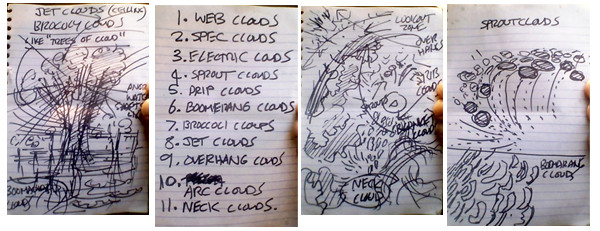 JET CLOUDS (CEILING)
BROCOLLY CLOUDS
LIKE "TREES OF CLOUD"
BOOMERANG
1. WEB CLOUDS
2. SPEC CLOUDS
3. ELECTRIC CLOUDS
4. SPROUT CLOUDS
5. DRIP CLOUDS
6. BOOMERANG CLOUDS
7. BROCCOLI CLOUDS
8. JET CLOUDS
9. OVERHANG CLOUDS
10.
ARC CLOUDS
11. NECK CLOUDS.
LOOKOUT
ZONE
OVER
HANG
DRIB
CLOUD
NECK
CLOUD
SPROUTCLOUDS
BOOMARANG
CLOUDS